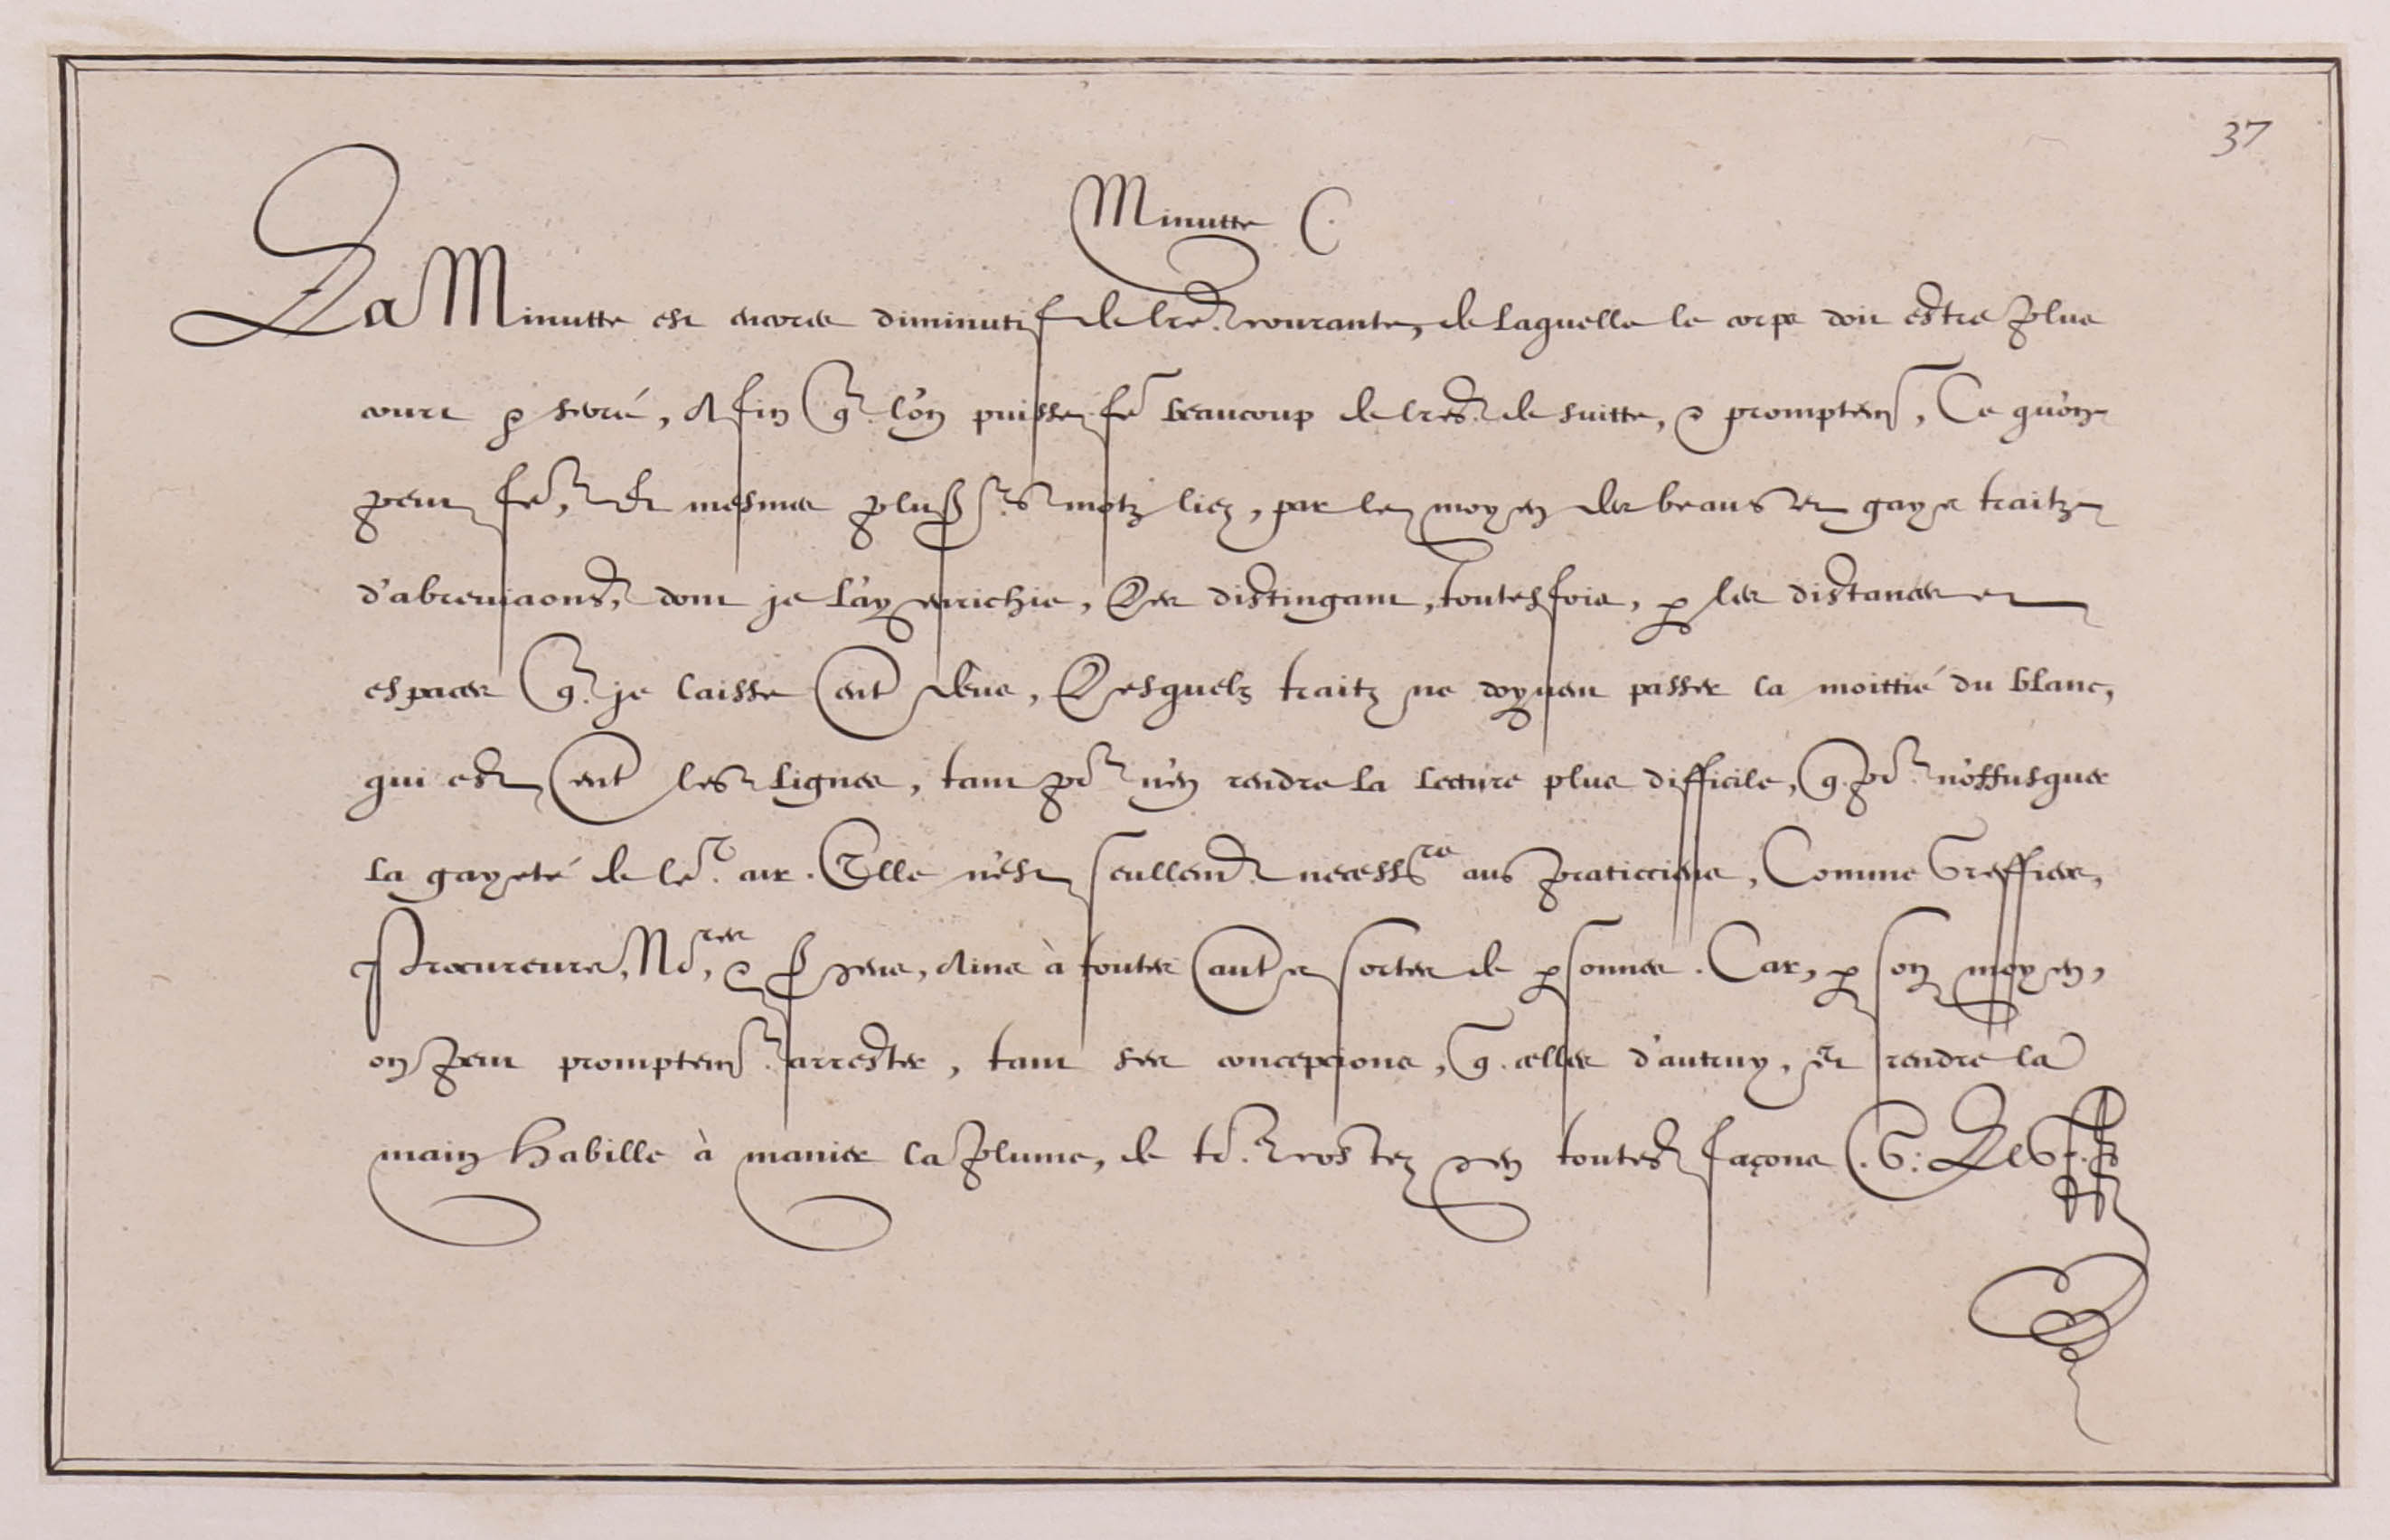 37
Minutte C.
La Minutte est encores diminutif de lre. courante, de laquelle le corps doit estre plus
court & serré, Afin q. l'on puisse fe beaucoup de lres. de suitte, & promptemt, Ce qu'on
peut fe, Et mesmes plusrs motz liez, par le moyen des beaus et gays traitz
d'abreviaons, dont je l'ay enrichie, Les distingant, toutesfois, p les distances et
espaces q. je laisse ent deus, Lesquelz traitz ne doyvent passer la moittié du blanc,
qui est ent les lignes, tant pr n'en rendre la lecture plus difficile, q. pr n'offusquer
la gayeté de ler. air. Elle n'est seullemt. necessre aus praticciens, Comme Greffiers,
Procureurs, Nores, & Sergens, Ains à toutes autes sortes de psonnes. Car, p son moyen,
on peut promptemt. arrester, tant ses concepcions, q. celles d'autruy, et rendre la
main habille à manier la plume, de ts. costez & en toutes façons. G: Le G